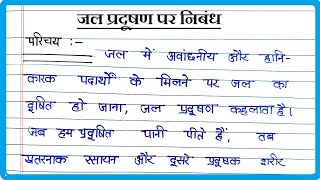 जल प्रदूषण पर निबंध
परिचय :-
जल में अवांछनीय और हानि-
कारक पदार्थों के मिलने पर जल का
दूषित हो जाना, जल प्रदूषण कहलाता है।
जब हम प्रदूषित पानी पीते हैं, तब
खतरनाक रसायन और दूसरे प्रदूषक शरीर